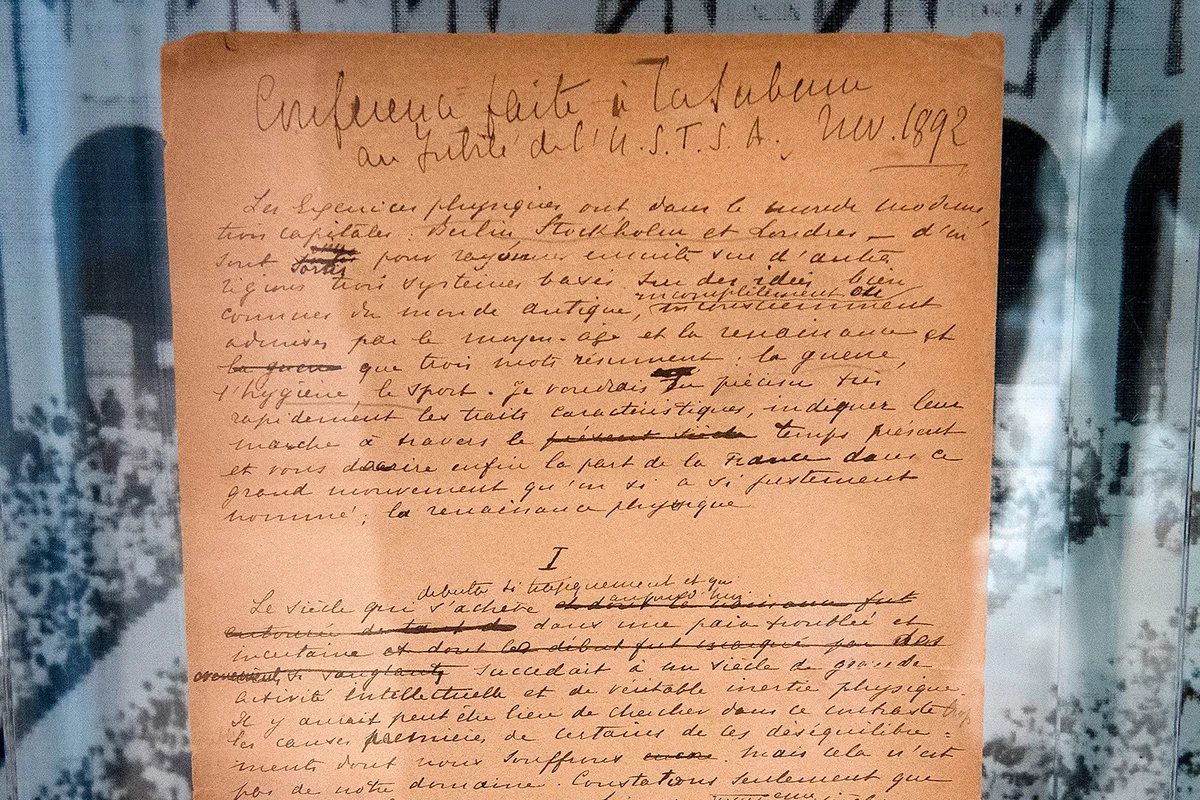 Conférence faite à la Sorbonne
au Jubilé de l'U.S.F.S.A. Nov. 1892
Les Exercices physiques ont dans le monde moderne
trois capitales : Berlin Stockholm et Londres — d'où
sont sortis pour rayonner ensuite sur d'autres
régions trois systèmes basés sur des idées bien
incomplètement ou
connues du monde antique, inconsciemment
admises par le moyen-âge et la renaissance et
la guerre que trois mots résument : la guerre,
l'hygiène, le sport. Je voudrais en préciser très
rapidement les traits caractéristiques, indiquer leur
marche à travers le présent siècle temps présent
et vous decrire enfin la part de la France dans ce
grand mouvement qu'on a si justement
nommé : la renaissance physique
I
debuta si tragiquement et qui
Le siècle qui s'achève et dont la naissance fut
entourée de tant de dans une paix troublée et
incertaine et dont le début fut marqué par des
évènements si sanglants succedait à un siècle de grande
activité intellectuelle et de véritable inertie physique.
Il y aurait peut être lieu de chercher dans ce contraste
les causes premières de certains de ces déséquilibre-
ments dont nous souffrons encore. Mais cela n'est
pas de notre domaine. Constatons seulement que